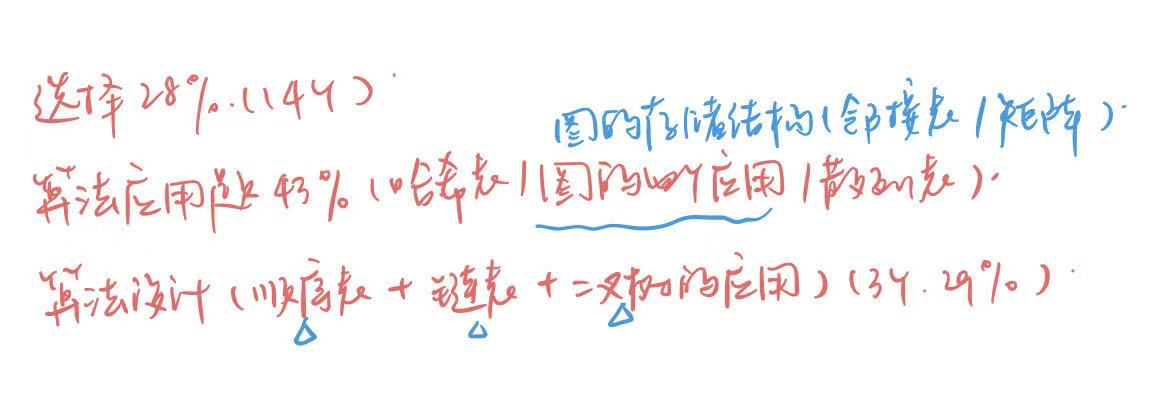 选择28%.(14个)
图的存储结构(邻接表/矩阵)
算法应用题43%(哈希表/图的四个应用/散列表)
算法设计(顺序表+链表+二叉树的应用)(3个.29%)